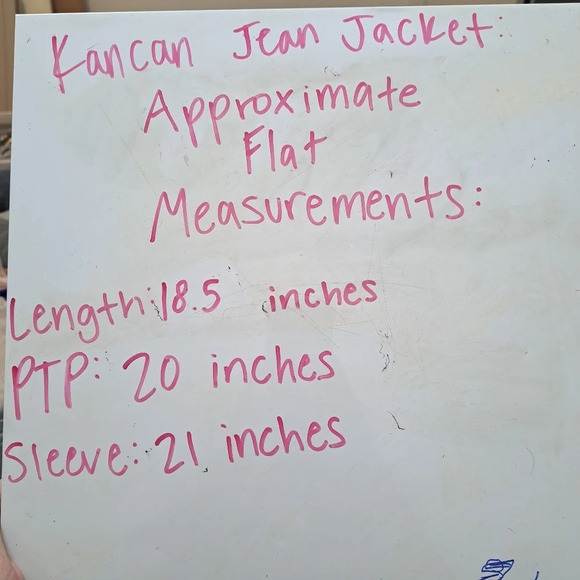 Kancan Jean Jacket:
Approximate
Flat
Measurements:
Length: 18.5 inches
PTP: 20 inches
Sleeve: 21 inches